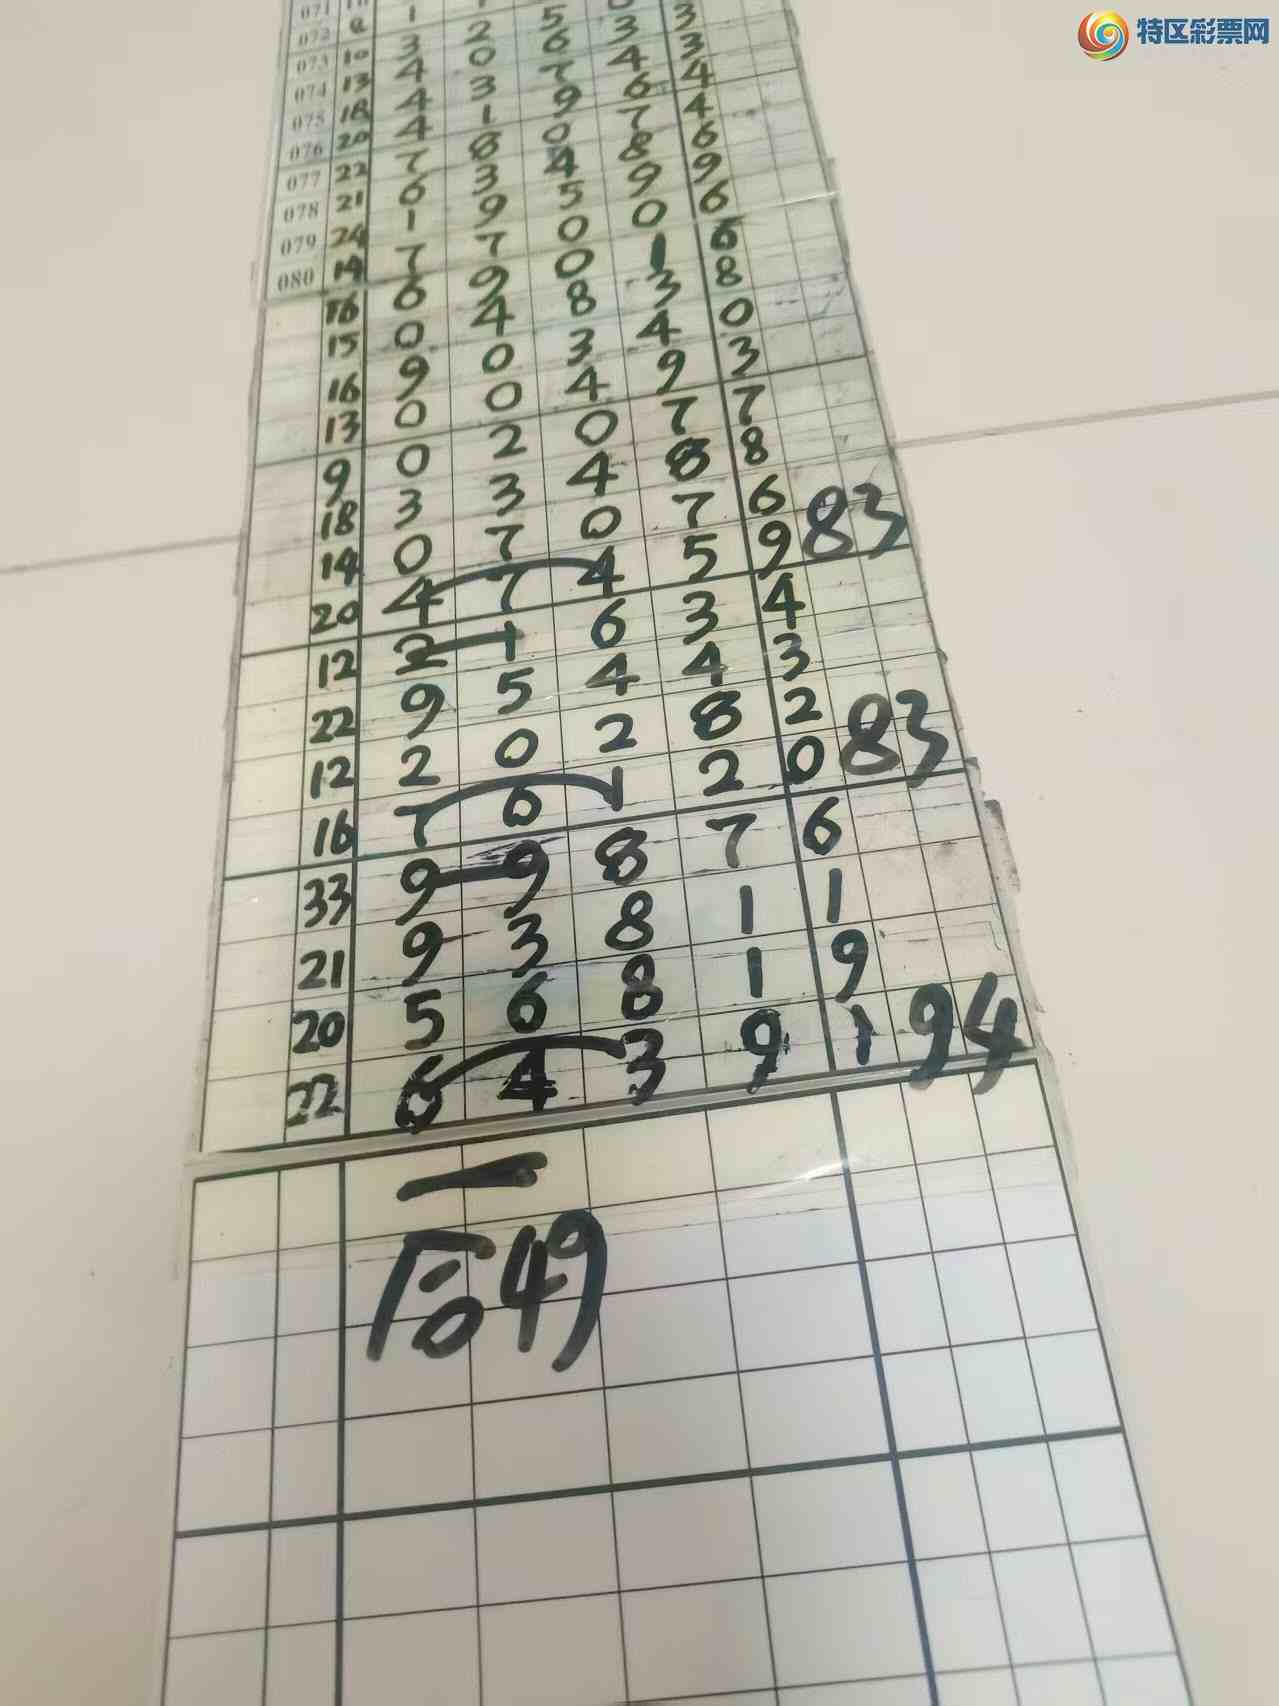 特区彩票网
071 10
072 8 1
073 10 3 2 5 0 3
074 13 4 0 6 3 3
075 18 4 3 7 4 4
076 20 4 1 9 6 4
077 22 7 8 0 7 6
078 21 6 3 4 8 9
079 24 1 9 5 9 6
080 14 7 7 0 0 6
16 6 9 0 1 6
15 0 4 8 3 8
16 9 0 3 4 0
13 0 0 4 9 3
9 0 2 0 7 7
18 3 3 4 8 8
14 0 7 0 7 6
20 4 7 4 5 9 83
12 2 1 6 3 4
22 9 5 4 4 3
12 2 0 2 8 2
16 7 6 1 2 0 83
33 9 9 8 7 6
21 9 3 8 1 1
20 5 6 8 1 9
22 6 4 3 9 1 94
一
后49